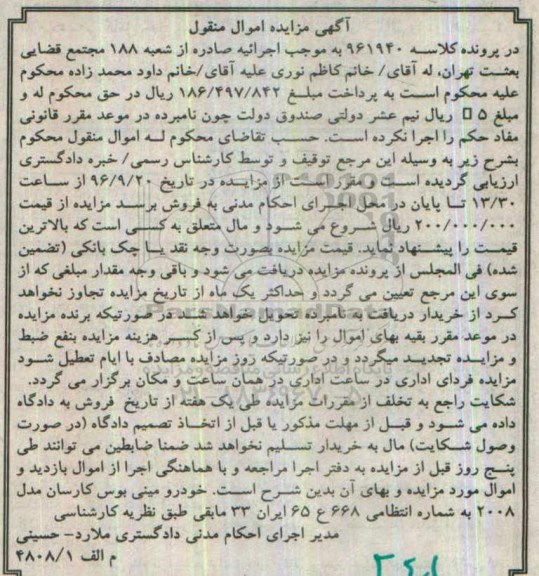 آگهی مزایده اموال منقول
در پرونده کلاسه ۹۶۱۹۴۰ به موجب اجرائیه صادره از شعبه ۱۸۸ مجتمع قضایی
بعثت تهران، له آقای/ خانم کاظم نوری علیه آقای/خانم داود محمد زاده محکوم
علیه محکوم است به پرداخت مبلغ ۱۸۶/۴۹۷/۸۴۲ ریال در حق محکوم له و
مبلغ ۵ ریال نیم عشر دولتی صندوق دولت چون نامبرده در موعد مقرر قانونی
مفاد حکم را اجرا نکرده است. حسب تقاضای محکوم له اموال منقول محکوم
بشرح زیر به وسیله این مرجع توقیف و توسط کارشناس رسمی/ خبره دادگستری
ارزیابی گردیده است و مقرر است از مزایده در تاریخ ۹۶/۹/۲۰ از ساعت
۱۳/۳۰ تا پایان در محل اجرای احکام مدنی به فروش برسد مزایده از قیمت
۲۰۰/۰۰۰/۰۰۰ ریال شروع می شود و مال متعلق به کسی است که بالاترین
قیمت را پیشنهاد نماید. قیمت مزایده بصورت وجه نقد یا چک بانکی (تضمین
شده) فی المجلس از برنده مزایده دریافت می شود و باقی وجه مقدار مبلغی که از
سوی این مرجع تعیین می گردد و حداکثر یک ماه از تاریخ مزایده تجاوز نخواهد
کرد از خریدار دریافت به نامبرده تحویل خواهد شد. در صورتیکه برنده مزایده
در موعد مقرر بقیه بهای اموال را نیز دارد و پس از کسر هزینه مزایده بنفع ضبط
و مزایده تجدید میگردد و در صورتیکه روز مزایده مصادف با ایام تعطیل شود
مزایده فردای اداری در ساعت اداری در همان ساعت و مکان برگزار می گردد.
شکایت راجع به تخلف از مقررات مزایده طی یک هفته از تاریخ فروش به دادگاه
داده می شود و قبل از مهلت مذکور یا قبل از اتخاذ تصمیم دادگاه (در صورت
وصول شکایت) مال به خریدار تسلیم نخواهد شد ضمنا ضابطین می توانند طی
پنج روز قبل از مزایده به دفتر اجرا مراجعه و با هماهنگی اجرا از اموال بازدید و
اموال مورد مزایده و بهای آن بدین شرح است. خودرو مینی بوس کارسان مدل
۲۰۰۸ به شماره انتظامی ۶۶۸ ع ۶۵ ایران ۳۳ مابقی طبق نظریه کارشناسی
مدیر اجرای احکام مدنی دادگستری ملارد- حسینی
م الف ۴۸۰۸/۱